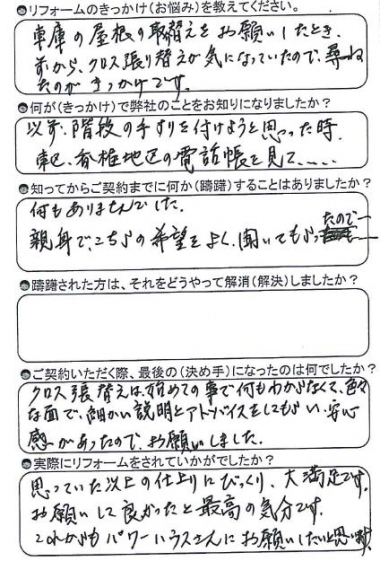 ●リフォームのきっかけ(お悩み)を教えてください。
車庫の屋根の取替えをお願いしたとき、
前から、クロス張り替えが気になっていたので、尋ね
たのがきっかけです。
●何が(きっかけ)で弊社のことをお知りになりましたか？
以前、階段の手すりを付けようと思った時、
香椎地区の電話帳を見て、……
●知ってからご契約までに何か(躊躇)することはありましたか？
何もありませんでした。
親身で、こちらの希望をよく、聞いてもらったので―
●躊躇された方は、それをどうやって解消(解決)しましたか？
●ご契約いただく際、最後の(決め手)になったのは何でしたか？
クロス張替えは、始めての事で何もわからなくて、色々
な面で、細かい説明とアドバイスをしてもらい、安心
感があったので、お願いしました。
●実際にリフォームをされていかがでしたか？
思っていた以上の仕上りにびっくり、大満足です。
お願いして良かったと最高の気分です。
これからもパワーハウスさんにお願いしたいと思います